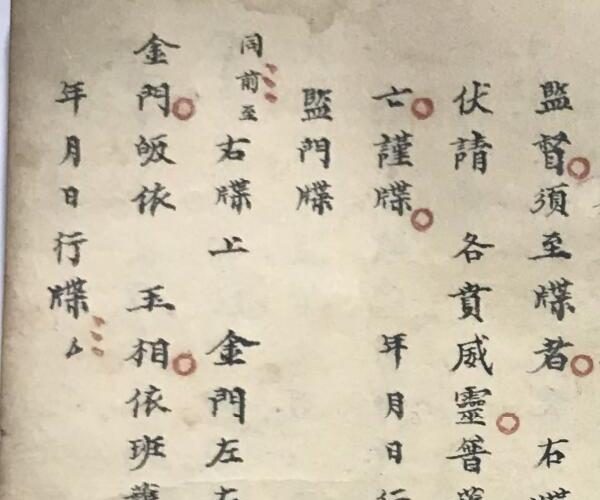 監督須至牒者 右牒
伏請 各賁威靈普
亡謹牒 年月日行
監門牒
同前至
右牒上 金門左右
金門皈依 玉相依班
年月日行牒